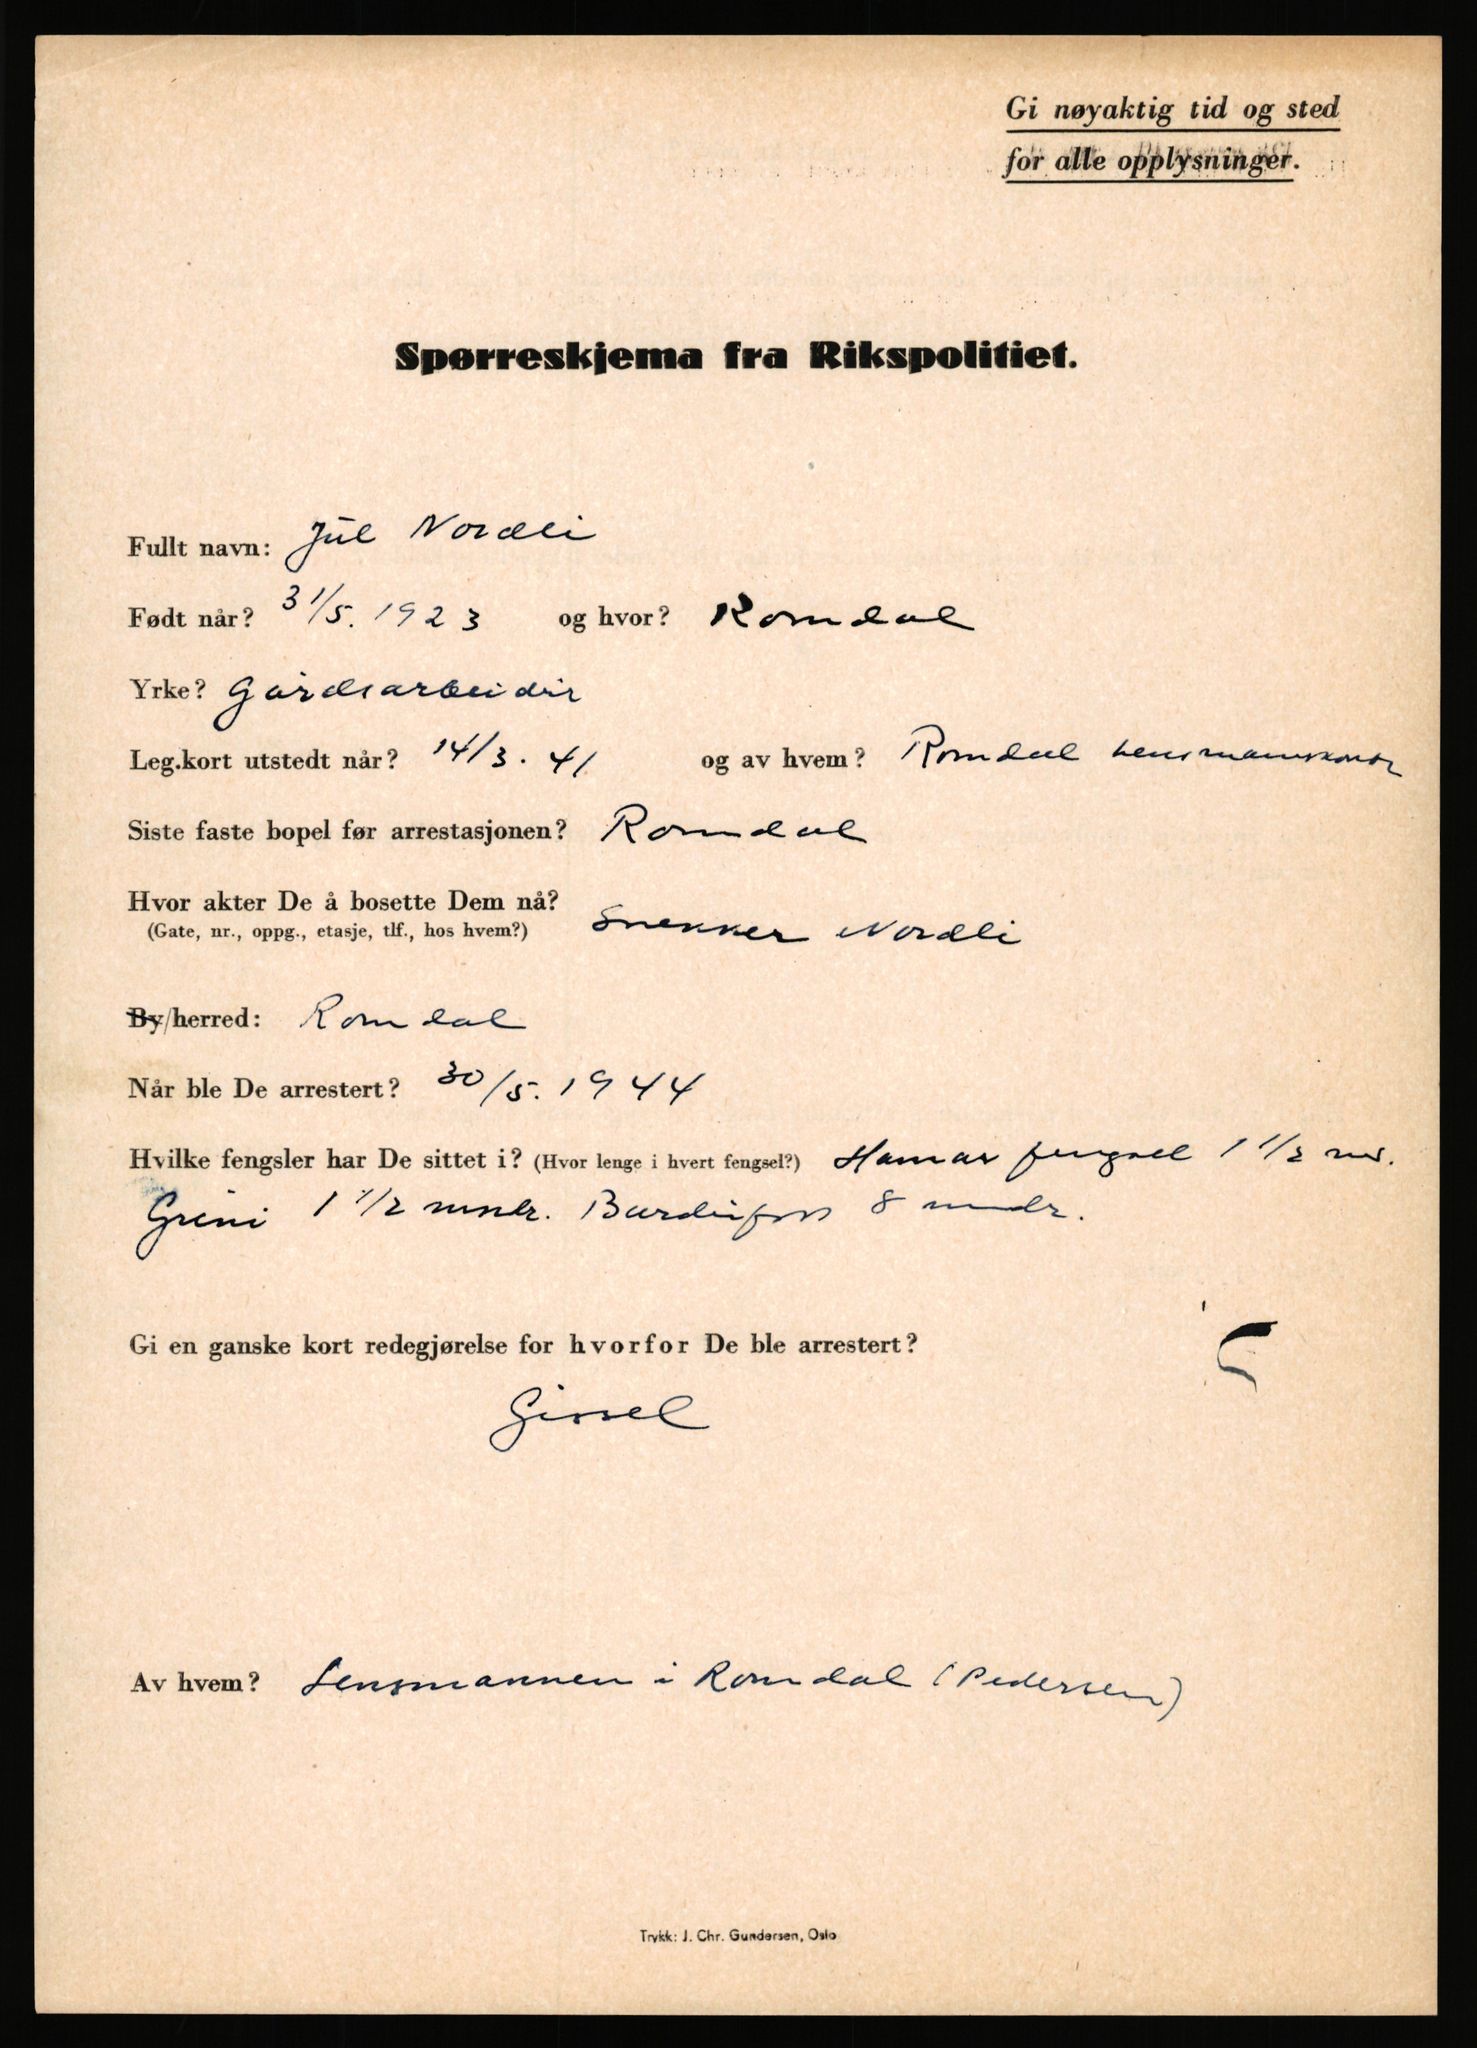 Gi nøyaktig tid og sted
for alle opplysninger.
Spørreskjema fra Rikspolitiet.
Fullt navn: Jul Nordli
Født når? 31/5. 1923 og hvor? Romdal
Yrke? Gårdsarbeider
Leg.kort utstedt når? 14/3. 41. og av hvem? Romdal Lensmannskontor
Siste faste bopel før arrestasjonen? Romdal
Hvor akter De å bosette Dem nå? Snekker Nordli
(Gate, nr., oppg., etasje, tlf., hos hvem?)
By/herred: Romdal
Når ble De arrestert? 30/5. 1944
Hvilke fengsler har De sittet i? (Hvor lenge i hvert fengsel?) Hamar fengsel 1 1/2
Grini 1 1/2 mndr. Bardufoss 8 mndr.
Gi en ganske kort redegjørelse for hvorfor De ble arrestert?
Gissel
Av hvem? Lensmannen i Romdal (Pedersen)
Trykk: J. Chr. Gundersen, Oslo